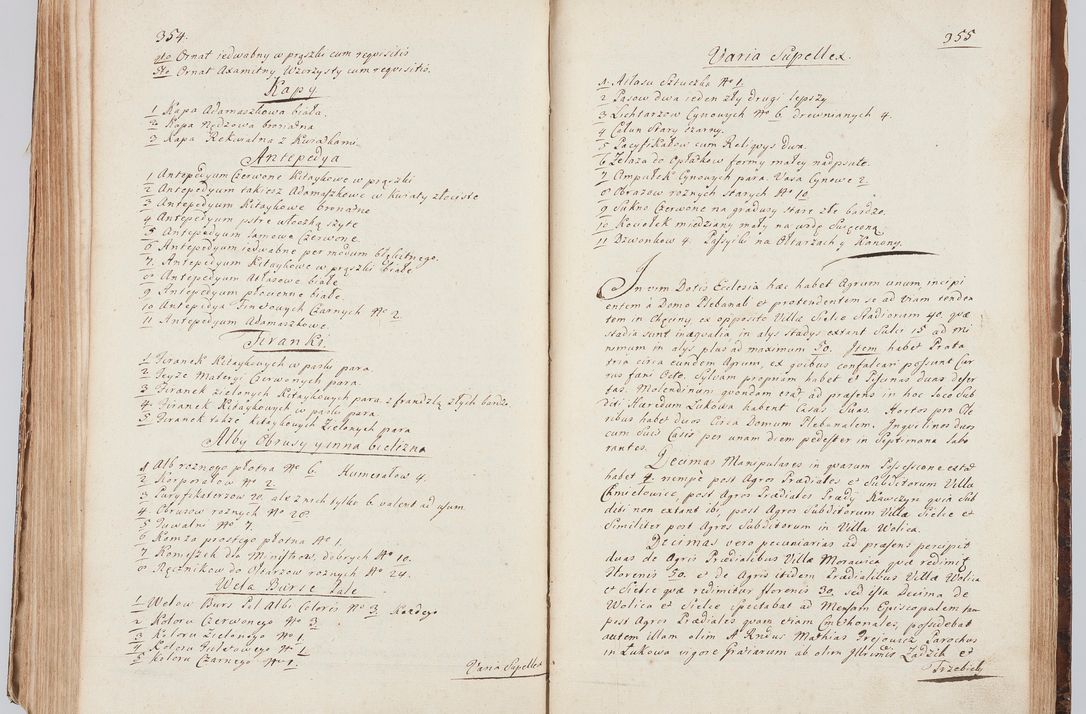 354.
4to Ornat iedwabny w prążki cum requisitis
5to Ornat Axamitny Wzorzysty cum requisitis.
Kapy.
1 Kapa Adamaszkowa biała.
2 Kapa Nędzowa bronatna
3 Kapa Rekwialna z Kwiatkami
Antepedya
1 Antepedyum Czerwone Kitaykowe w prążki
2 Antepedyum takiesz Adamaszkowe w Kwiaty złociste
3 Antepedyum Kitaykowe bronatne
4 Antepedyum pstre włoczką szyte
5 Antepedyum lamowe Czerwone
6 Antepedyum iedwabne per modum błękitnego.
7. Antepedyum Kitaykowe w prążki białe
8 Antepedyum Atłasowe białe
9 Antepedyum płocienne białe.
10 Antepedya Trzetowych Czarnych No 2
11 Antepedyum Adamaszkowe.
Firanki.
1 Firanek Kitaykowych w pasku para
2 Teyże Materyi Czerwonych para.
3 Firanek zielonych Kitaykowych para. z frandzlą złych bardzo
4 Firanek Kitaykowych w pasku para
5 Firanek także Kitaykowych Zielonych para
Alby Obrusy y inna bielizna
1 Alb rożnego płotna No 6. Humerałow 4.
2 Korporałow No 2
3 Puryfikaterzow 20. ale z nich tylko 6 valent ad usum.
4. Obrusow rożnych No 28
5 Tuwalni No 7.
6 Komża prostego płotna No 1.
7 Komżek do Ministrow, dobrych No 10.
8 Ręcznikow do Ołtarzow rożnych No 24.
Wela Bursę Pale
1 Welow Burs Pal Albi Coloris No 3 Każdego
2 Koloru Czerwonego No 3
3 Koloru Zielonego No 1.
4 Koloru Fioletowego No 1
5 Koloru Czarnego No 1.
Varia Supellex
355
Varia Supellex.
1. Atłasu Sztuczka No 1.
2 Pasow dwa ieden zły drugi lepszy
3 Lichtarzow Cynowych No 6. drewnianych 4.
4 Całun Stary Czarny.
5 Pacyfikałow cum Reliquys dwa.
6 Żelaza do Opłatkow formy małey nadpsute.
7 Ampułek Cynowych para. Vasa Cynowe 2.
8 Obrazow rożnych starych No 10
9 Sukno Czerwone na gradusy stare złe bardzo.
10 Kociełek miedziany mały na wodę Święconą
11 Dzwonkow 4. Passyiki na Ołtarzach y Kanony.
In vim Dotis Eclesia hæc habet Agrum unum, incipi
entem à Domo Plebanali et protendentem se ad Viam tenden
tem in Chęciny ex opposito Villæ Sielce Stadiorum 40. quæ
stadia sunt inæqualia in alys stadys extant Sulci 15 ad mi
nimum in alys plus ad maximum 50. Item habet Prata
tria circa eundem Agrum, ex quibus confalcari possunt Cur
rus fæni Octo. Sylvam propriam habet et Pisunas duas deser
tas. Molendinum quondam erat ad præsens in hoc loco Sub
diti Hæredum Łukowa habent Casas Suas. Hortos pro Ole
ribus habet duos Circa Domum Plebanalem. Inquilinos duos
cum Suis Casis per unam diem pedester in Septimana labo
rantes.
Decimas Manipulares in quarum Possessione est
habet 4. nempè post Agros Prædiales et Subditorum Villæ
Chmielowice, post Agros Prædiales Prædij Kawczyn quia Sub
diti non extant ibi, post Agros Subditorum Villæ Sielce et
Similiter post Agros Subditorum in Villa Wolica.
Decimas vero pecuniarias ad præsens percipit
duas de Agris Prædialibus Villæ Morawica quæ redimitur
florenis 50. et de Agris itidem Prædialibus Villæ Wolica
et Sielce quæ redimitur florenis 30. sed ista Decima de
Wolica et Sielce spectabat ad Mensam Episcopalem tam
post Agros Prædiales quam etiam Cmethonales, possidebat
autem illam olim A. Rndus Mathias Grejowicz Parochus
in Łukowa vigore Gratiarum ab olim Illrimis Zadzik et
Trzebicki